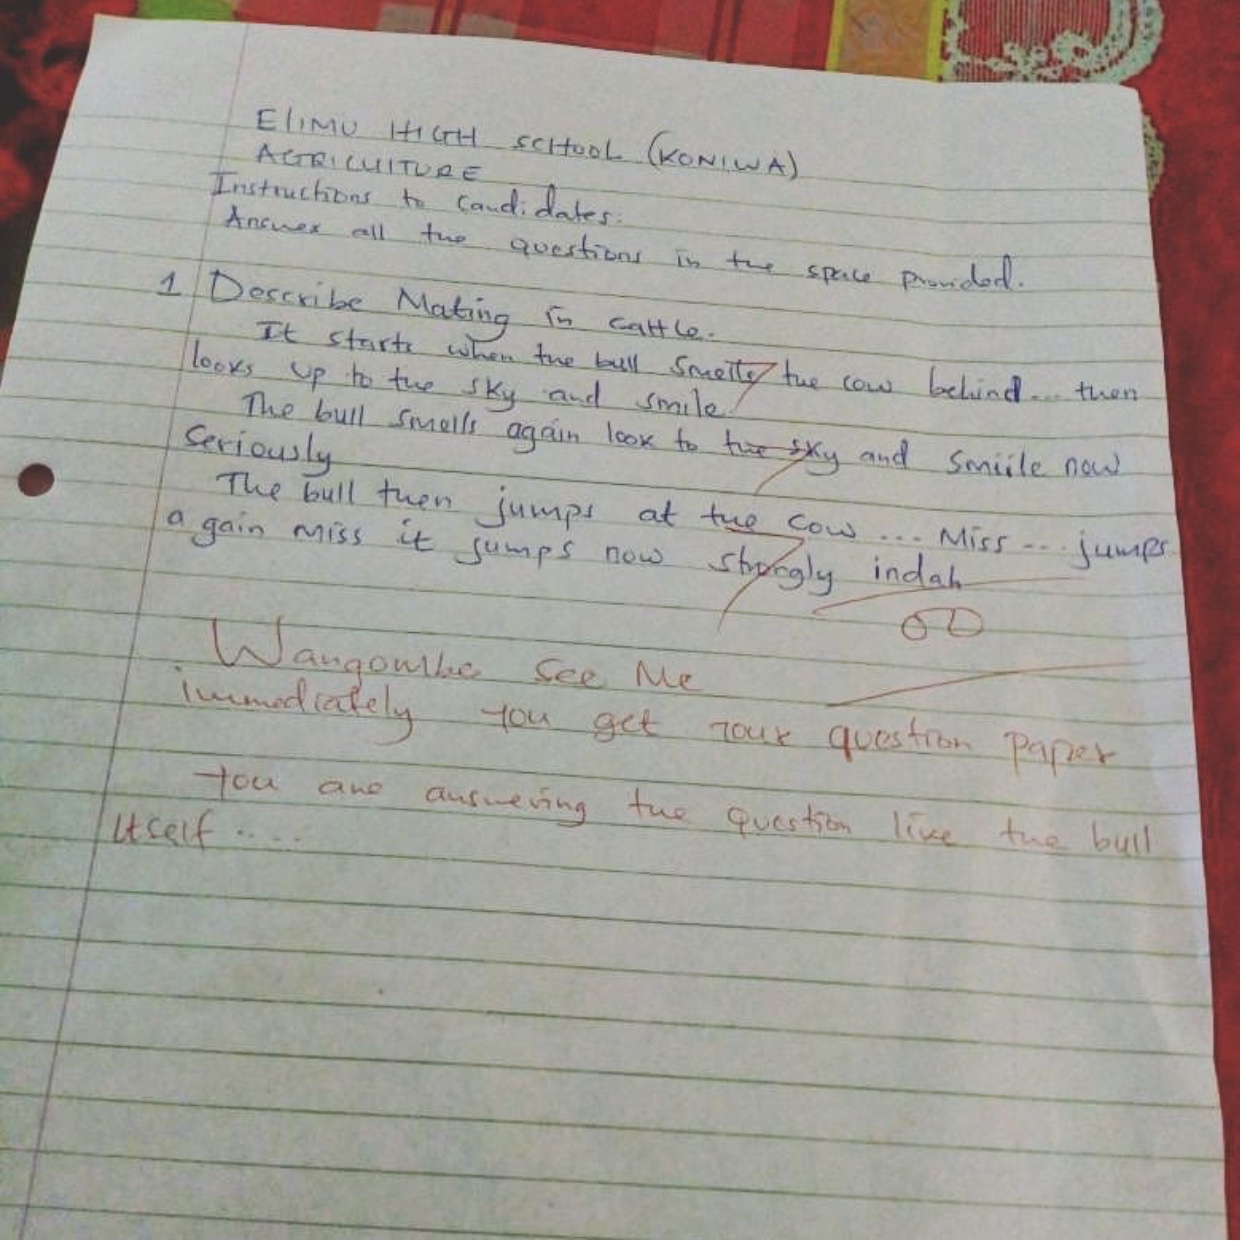 ElIMU HIGH SCHOOL (KONIWA)
AGRICUlTURE
Instructions to candidates:
Answer all the questions in the space provided.
1 Describe Mating in cattle.
It starts when the bull smells the cow behind... then
looks up to the sky and smile
The bull smells again look to the sky and smiile now
seriously
The bull then jumps at the cow ... Miss ... jumps
a gain miss it jumps now strongly indah
00
Wangombe see Me
immediately you get your question paper
You are answering the question like the bull
itself ....